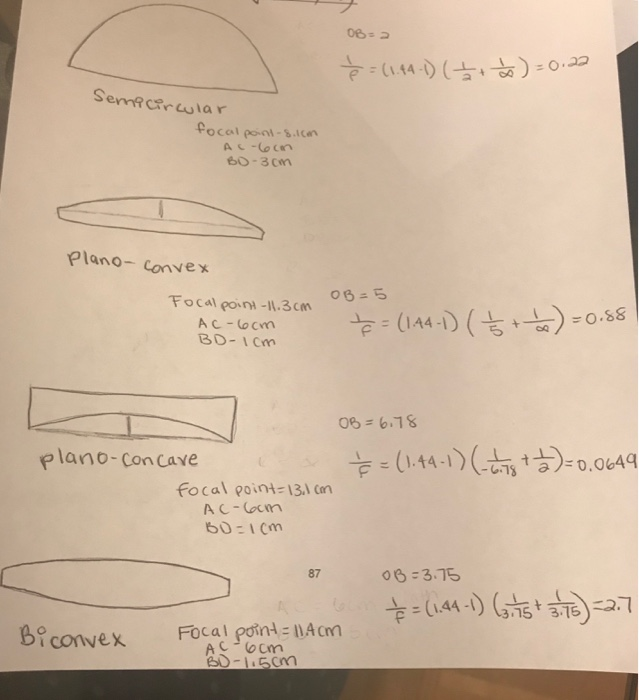 OB = 2
1/f = (1.44-1) (1/2 + 1/∞) = 0.22
Semicircular
focal point - 8.1cm
AC - 6cm
BD - 3cm
Plano-convex
OB = 5
Focal point - 11.3cm
1/f = (1.44-1) (1/5 + 1/∞) = 0.88
AC - 6cm
BD - 1cm
OB = 6.78
plano-concave
1/f = (1.44-1) (1/-6.78 + 1/2) = 0.0649
focal point = 13.1cm
AC - 6cm
BD = 1cm
87
OB = 3.75
1/f = (1.44-1) (1/3.75 + 1/3.75) = 2.7
Biconvex
Focal point = 11.4cm
AC - 6cm
BD - 1.5cm